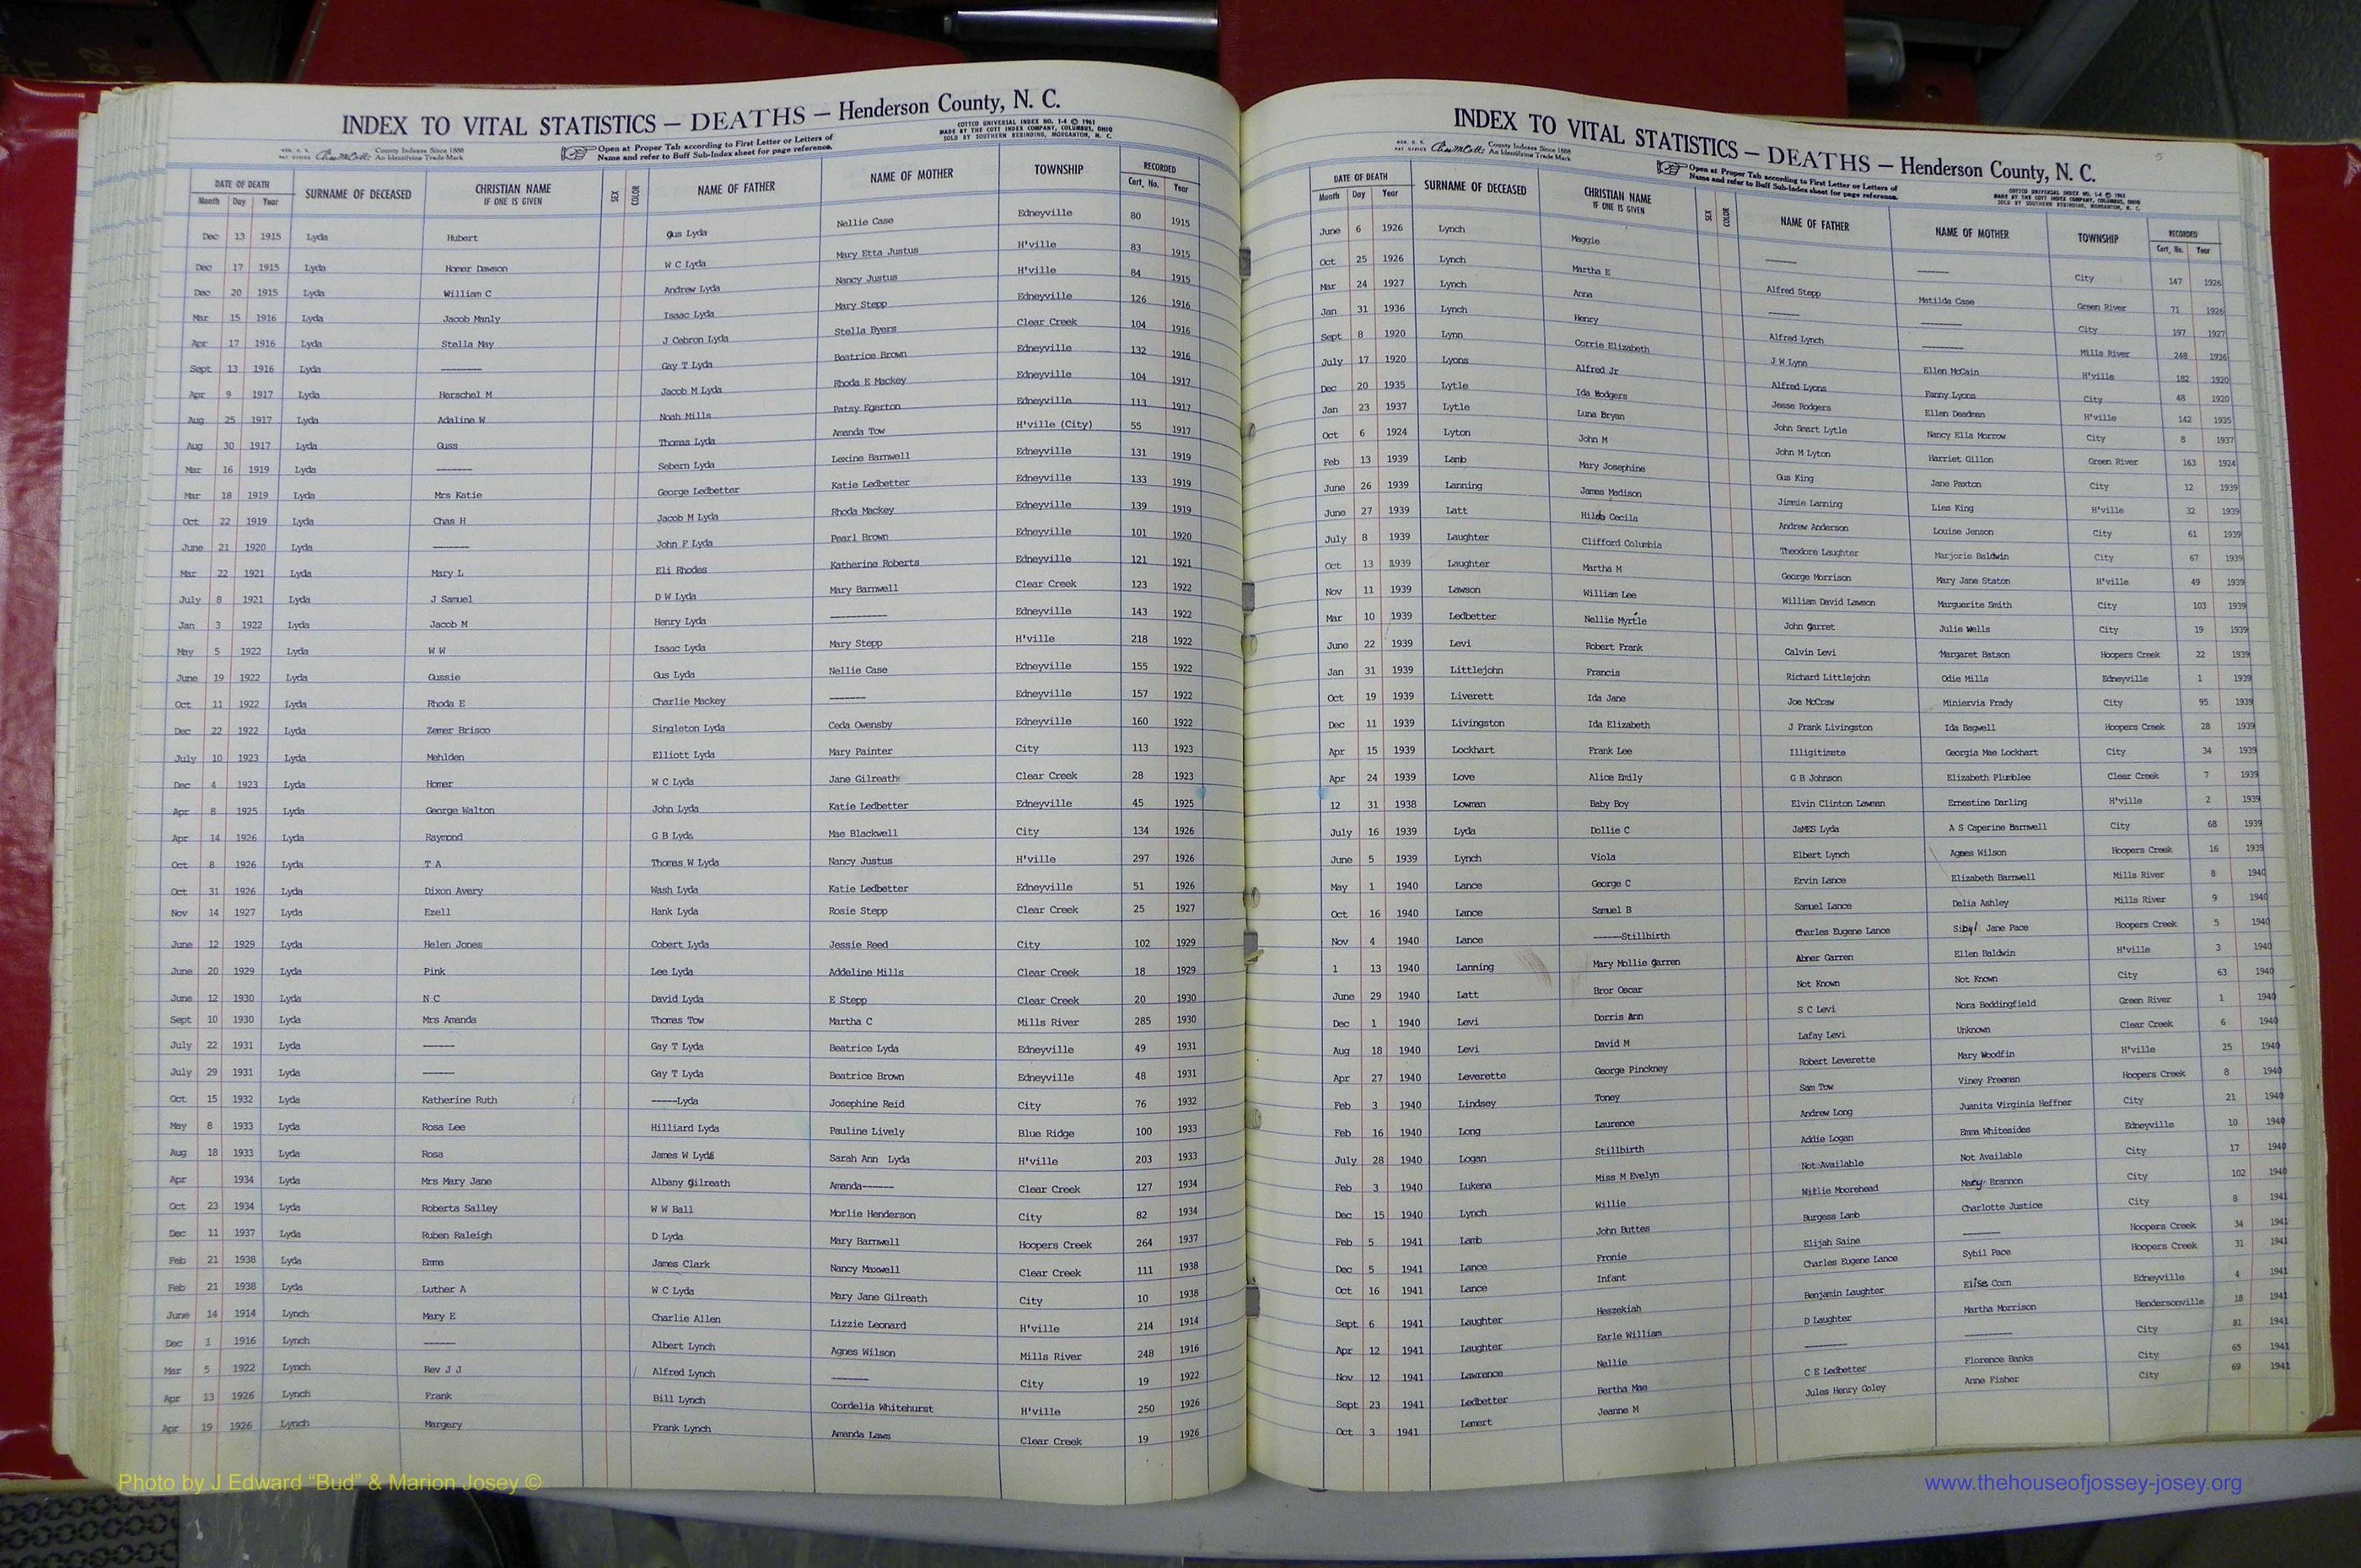 INDEX TO VITAL STATISTICS — DEATHS — Henderson County, N. C.
County Indexes Since 1888
An Identifying Trade Mark
Open at Proper Tab according to First Letter or Letters of
Name and refer to Buff Sub-Index sheet for page reference.
COTTCO UNIVERSAL INDEX NO. 1-4 © 1961
MADE BY THE COTT INDEX COMPANY, COLUMBUS, OHIO
SOLD BY SOUTHERN REBINDING, MORGANTON, N. C.
DATE OF DEATH SURNAME OF DECEASED CHRISTIAN NAME IF ONE IS GIVEN SEX COLOR NAME OF FATHER NAME OF MOTHER TOWNSHIP RECORDED
Month Day Year Cert. No. Year
Dec 13 1915 Lyda Hubert Gus Lyda Nellie Case Edneyville 80 1915
Dec 17 1915 Lyda Homer Dawson W C Lyda Mary Etta Justus H'ville 83 1915
Dec 20 1915 Lyda William C Andrew Lyda Nancy Justus H'ville 84 1915
Mar 15 1916 Lyda Jacob Manly Isaac Lyda Mary Stepp Edneyville 126 1916
Apr 17 1916 Lyda Stella May J Cebron Lyda Stella Byers Clear Creek 104 1916
Sept 13 1916 Lyda ------- Gay T Lyda Beatrice Brown Edneyville 132 1916
Apr 9 1917 Lyda Herschel M Jacob M Lyda Rhoda E Mackey Edneyville 104 1917
Aug 25 1917 Lyda Adaline W Noah Mills Patsy Egerton Edneyville 113 1917
Aug 30 1917 Lyda Guss Thomas Lyda Amanda Tow H'ville (City) 55 1917
Mar 16 1919 Lyda ------- Sebern Lyda Lexine Barnwell Edneyville 131 1919
Mar 18 1919 Lyda Mrs Katie George Ledbetter Katie Ledbetter Edneyville 133 1919
Oct 22 1919 Lyda Chas H Jacob M Lyda Rhoda Mackey Edneyville 139 1919
June 21 1920 Lyda ------- John F Lyda Pearl Brown Edneyville 101 1920
Mar 22 1921 Lyda Mary L Eli Rhodes Katherine Roberts Edneyville 121 1921
July 8 1921 Lyda J Samuel D W Lyda Mary Barnwell Clear Creek 123 1922
Jan 3 1922 Lyda Jacob M Henry Lyda ------- Edneyville 143 1922
May 5 1922 Lyda W W Isaac Lyda Mary Stepp H'ville 218 1922
June 19 1922 Lyda Gussie Gus Lyda Nellie Case Edneyville 155 1922
Oct 11 1922 Lyda Rhoda E Charlie Mackey ------- Edneyville 157 1922
Dec 22 1922 Lyda Zemer Brisco Singleton Lyda Ceda Owensby Edneyville 160 1922
July 10 1923 Lyda Mehlden Elliott Lyda Mary Painter City 113 1923
Dec 4 1923 Lyda Homer W C Lyda Jane Gilreath Clear Creek 28 1923
Apr 8 1925 Lyda George Walton John Lyda Katie Ledbetter Edneyville 45 1925
Apr 14 1926 Lyda Raymond G B Lyda Mae Blackwell City 134 1926
Oct 8 1926 Lyda T A Thomas W Lyda Nancy Justus H'ville 297 1926
Oct 31 1926 Lyda Dixon Avery Wash Lyda Katie Ledbetter Edneyville 51 1926
Nov 14 1927 Lyda Ezell Hank Lyda Rosie Stepp Clear Creek 25 1927
June 12 1929 Lyda Helen Jones Cobert Lyda Jessie Reed City 102 1929
June 20 1929 Lyda Pink Lee Lyda Addeline Mills Clear Creek 18 1929
June 12 1930 Lyda N C David Lyda E Stepp Clear Creek 20 1930
Sept 10 1930 Lyda Mrs Amanda Thomas Tow Martha C Mills River 285 1930
July 22 1931 Lyda ------ Gay T Lyda Beatrice Lyda Edneyville 49 1931
July 29 1931 Lyda ------ Gay T Lyda Beatrice Brown Edneyville 48 1931
Oct 15 1932 Lyda Katherine Ruth -----Lyda Josephine Reid City 76 1932
May 8 1933 Lyda Rosa Lee Hilliard Lyda Pauline Lively Blue Ridge 100 1933
Aug 18 1933 Lyda Rosa James W Lyda Sarah Ann Lyda H'ville 203 1933
Apr 1934 Lyda Mrs Mary Jane Albany gilreath Amanda------ Clear Creek 127 1934
Oct 23 1934 Lyda Roberta Salley W W Ball Morlie Henderson City 82 1934
Dec 11 1937 Lyda Ruben Raleigh D Lyda Mary Barnwell Hoopers Creek 264 1937
Feb 21 1938 Lyda Emma James Clark Nancy Maxwell Clear Creek 111 1938
Feb 21 1938 Lyda Luther A W C Lyda Mary Jane Gilreath City 10 1938
June 14 1914 Lynch Mary E Charlie Allen Lizzie Leonard H'ville 214 1914
Dec 1 1916 Lynch ------ Albert Lynch Agnes Wilson Mills River 248 1916
Mar 5 1922 Lynch Rev J J Alfred Lynch ------- City 19 1922
Apr 13 1926 Lynch Frank Bill Lynch Cordelia Whitehurst H'ville 250 1926
Apr 19 1926 Lynch Margery Frank Lynch Amanda Laws Clear Creek 19 1926
INDEX TO VITAL STATISTICS — DEATHS — Henderson County, N. C.
County Indexes Since 1888
An Identifying Trade Mark
Open at Proper Tab according to First Letter or Letters of
Name and refer to Buff Sub-Index sheet for page reference.
COTTCO UNIVERSAL INDEX NO. 1-4 © 1961
MADE BY THE COTT INDEX COMPANY, COLUMBUS, OHIO
SOLD BY SOUTHERN REBINDING, MORGANTON, N. C.
DATE OF DEATH SURNAME OF DECEASED CHRISTIAN NAME IF ONE IS GIVEN SEX COLOR NAME OF FATHER NAME OF MOTHER TOWNSHIP RECORDED
Month Day Year Cert. No. Year
June 6 1926 Lynch Maggie ------ ------ City 147 1926
Oct 25 1926 Lynch Martha E Alfred Stepp Matilda Case Green River 71 1926
Mar 24 1927 Lynch Anna ------ -------- City 197 1927
Jan 31 1936 Lynch Henry Alfred Lynch ------- Mills River 248 1936
Sept 8 1920 Lynn Corrie Elizabeth J W Lynn Ellen McCain H'ville 182 1920
July 17 1920 Lyons Alfred Jr Alfred Lyons Fanny Lyons City 48 1920
Dec 20 1935 Lytle Ida Rodgers Jesse Rodgers Ellen Deadman H'ville 142 1935
Jan 23 1937 Lytle Luna Bryan John Smart Lytle Nancy Ella Morrow City 8 1937
Oct 6 1924 Lyton John M John M Lyton Harriet Gillon Green River 163 1924
Feb 13 1939 Lamb Mary Josephine Gus King Jane Paxton City 12 1939
June 26 1939 Lanning James Madison Jimmie Lanning Lies King H'ville 32 1939
June 27 1939 Latt Hilda Cecila Andrew Anderson Louise Jenson City 61 1939
July 8 1939 Laughter Clifford Columbia Theodore Laughter Marjorie Baldwin City 67 1939
Oct 13 1939 Laughter Martha M George Morrison Mary Jane Staton H'ville 49 1939
Nov 11 1939 Lawson William Lee William David Lawson Marguerite Smith City 103 1939
Mar 10 1939 Ledbetter Nellie Myrtle John garret Julie Wells City 19 1939
June 22 1939 Levi Robert Frank Calvin Levi Margaret Batson Hoopers Creek 22 1939
Jan 31 1939 Littlejohn Francis Richard Littlejohn Odie Mills Edneyville 1 1939
Oct 19 1939 Liverett Ida Jane Joe McCraw Miniervia Frady City 95 1939
Dec 11 1939 Livingston Ida Elizabeth J Frank Livingston Ida Bagwell Hoopers Creek 28 1939
Apr 15 1939 Lockhart Frank Lee Illigitimate Georgia Mae Lockhart City 34 1939
Apr 24 1939 Love Alice Emily G B Johnson Elizabeth Plumblee Clear Creek 7 1939
12 31 1938 Lowman Baby Boy Elvin Clinton Lawman Ernestine Darling H'ville 2 1939
July 16 1939 Lyda Dollie C JaMES Lyda A S Caperine Barnwell City 68 1939
June 5 1939 Lynch Viola Elbert Lynch Agnes Wilson Hoopers Creek 16 1939
May 1 1940 Lance George C Ervin Lance Elizabeth Barnwell Mills River 8 1940
Oct 16 1940 Lance Samuel B Samuel Lance Delia Ashley Mills River 9 1940
Nov 4 1940 Lance ------Stillbirth Charles Eugene Lance Sibyl Jane Pace Hoopers Creek 5 1940
1 13 1940 Lanning Mary Mollie garren Abner Garren Ellen Baldwin H'ville 3 1940
June 29 1940 Latt Bror Oscar Not Known Not Known City 63 1940
Dec 1 1940 Levi Dorris Ann S C Levi Nora Beddingfield Green River 1 1940
Aug 18 1940 Levi David M Lafay Levi Unknown Clear Creek 6 1940
Apr 27 1940 Leverette George Pinckney Robert Leverette Mary Woodfin H'ville 25 1940
Feb 3 1940 Lindsey Toney Sam Tow Viney Freeman Hoopers Creek 8 1940
Feb 16 1940 Long Laurence Andrew Long Juanita Virginia Heffner City 21 1940
July 28 1940 Logan Stillbirth Addie Logan Emma Whitesides Edneyville 10 1940
Feb 3 1940 Lukena Miss M Evelyn Not Available Not Available City 17 1940
Dec 15 1940 Lynch Willie Willie Moorehead Mary Brannon City 102 1940
Feb 5 1941 Lamb John Buttes Burgess Lamb Charlotte Justice City 8 1941
Dec 5 1941 Lance Fronie Elijah Saine ------- Hoopers Creek 34 1941
Oct 16 1941 Lance Infant Charles Eugene Lance Sybil Pace Hoopers Creek 31 1941
Sept 6 1941 Laughter Heszekiah Benjamin Laughter Elisa Corn Edneyville 4 1941
Apr 12 1941 Laughter Earle William D Laughter Martha Morrison Hendersonville 18 1941
Nov 12 1941 Lawrence Nellie -------- --------- City 81 1941
Sept 23 1941 Ledbetter Bertha Mae C E Ledbetter Florence Banks City 65 1941
Oct 3 1941 Lemert Jeanne M Jules Henry Goley Anne Fisher City 69 1941
Photo by J Edward “Bud” & Marion Josey ©
www.thehouseofjossey-josey.org